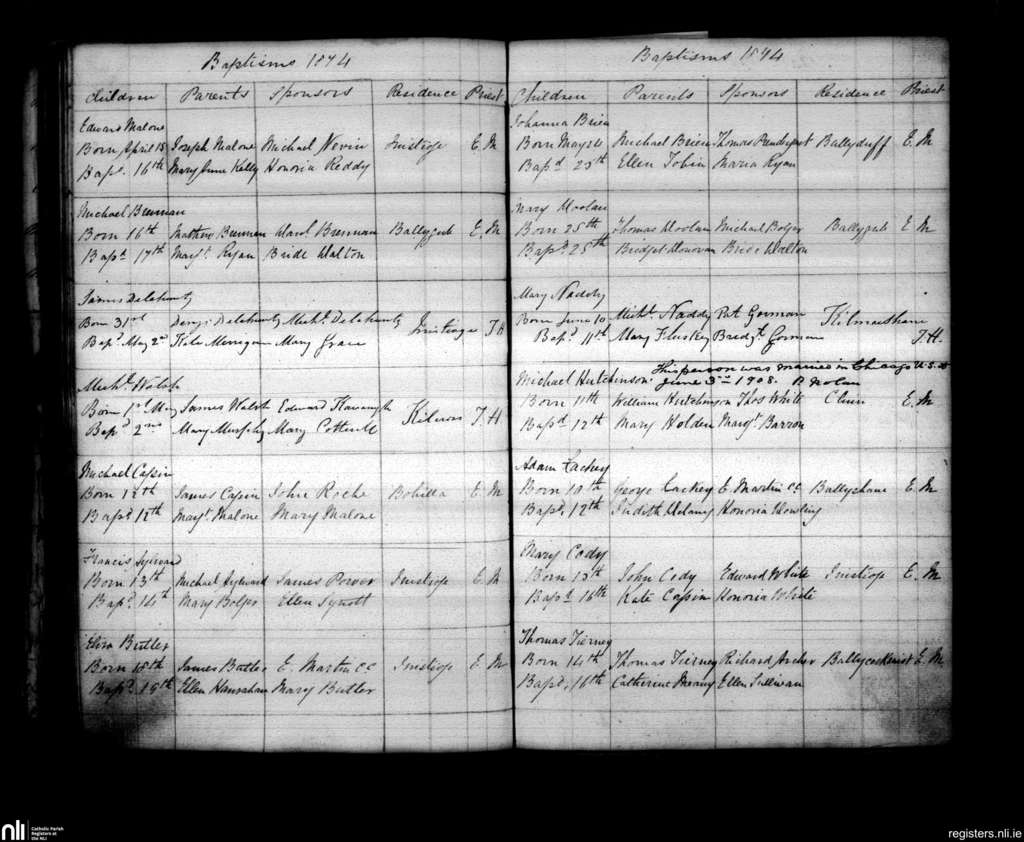 Baptisms 1874
Children Parents Sponsors Residence Priest
Edward Malone
Born April 15 Joseph Malone Michael Nevin Inistioge E. M
Bapd. 16th Mary Anne Kelly Honoria Reddy
Michael Brennan
Born 16th Mathew Brennan Brennan Ballygub E. M
Bapd. 17th Margt. Ryan Bride Walton
James Delahunty
Born 31st Denis Delahunty Michl. Delahunty Inistioge T H
Bapd. May 2nd Kate Merrigan Mary Grace
Michl. Walsh
Born 1st May James Walsh Edward Kavanagh Kilcross T. H
Bapd 2nd Mary Murphy Mary Cotterell
Michael Cassin
Born 12th James Cassin John Roche Bohilla E. M
Bapd 12th Margt. Malone Mary Malone
Francis Aylward
Born 13th Michael Aylward James Power Inistioge E. M
Bapd. 14th Mary Bolger Ellen Synott
Eliza Butler
Born 15th James Butler E. Martin CC Inistioge E. M
Bapd. 15th Ellen Hanrahan Mary Butler
Baptisms 1874
Children Parents Sponsors Residence Priest
Johanna Brien
Born May 21 Michael Brien Thomas Prendergast Ballyduff E. M
Bapd. 23rd Ellen Tobin Maria Ryan
Mary Woolan
Born 25th Thomas Woolan Michael Bolger Ballygub E M
Bapd. 25th Bridget Donovan Bride Walton
Mary Naddy
Born June 10 Michl. Naddy Pat Gorman
Bapd. 11th Mary Fluskey Bridgt. Gorman T. H.
Michael Hutchinson. This person was married in Chicago U.S.A
June 3rd 1908. P Nolan
Born 11th William Hutchinson Thos White Cluen E. M
Bapd. 12th Mary Holden Margt. Barron
Adam Lackey
Born 10th George Lackey E. Martin CC Ballyshane E. M
Bapd. 12th Judith Delany Honoria Dowling
Mary Cody
Born 15th John Cody Edward White Inistioge E. M
Bapd 16th Kate Cassin Honoria White
Thomas Tierney
Born 14th Thomas Tierney Richard Archer E. M
Bapd. 16th Catherine Meany Ellen Sullivan
nli
Catholic Parish
Registers at
the NLI
registers.nli.ie